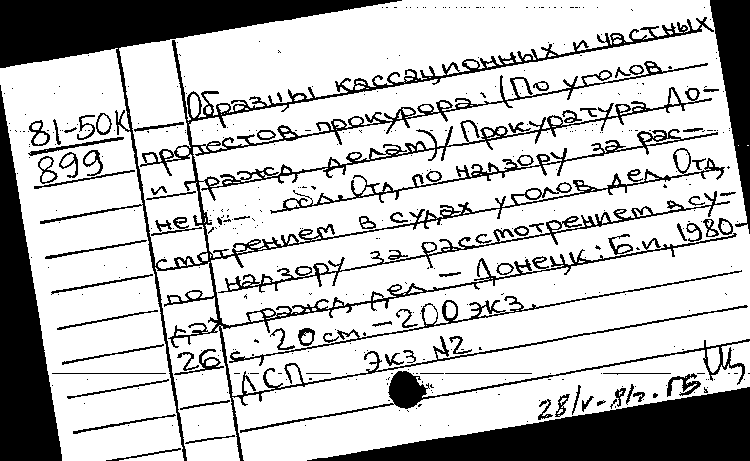 81-50К
899
Образцы кассационных и частных
протестов прокурора: (По уголов.
и гражд. делам) / Прокуратура До-
нец обл. Отд. по надзору за рас-
смотрением в судах уголов. дел. Отд.
по надзору за расстотрением в су-
дах гражд. дел. – Донецк: Б.и., 1980-
26 с.; 20 см. – 200 экз.
ДСП. Экз. №2.
28/V-81г. ГБ.